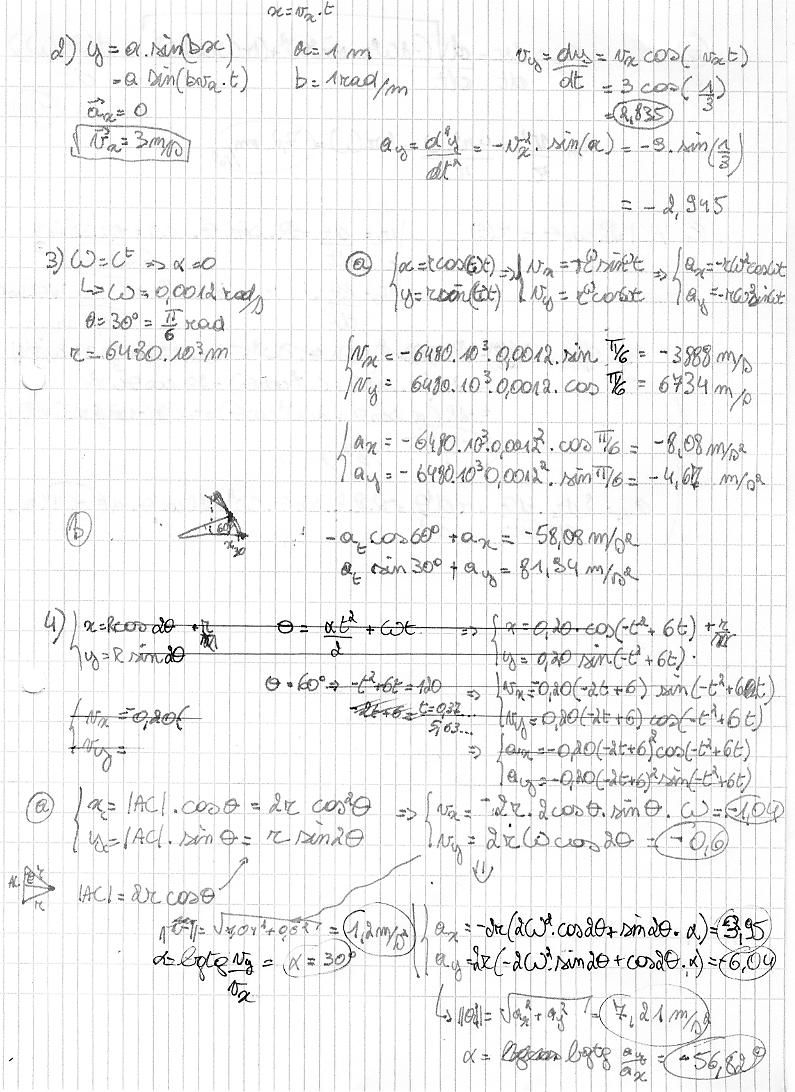 x = vx . t
2) y = a . sin(bx)
= a sin(bvx . t)
a = 1 m
b = 1 rad/m
ax = 0
vx = 3 m/s
vy = dy/dt = vx cos( vxt)
= 3 cos(1/3)
= 2,835
ay = d²y/dt² = -vx² . sin(x) = -9 . sin(1/3)
= -2,945
3) ω = Ct ⇒ α = 0
↳ ω = 0,0012 rad/s
θ = 30° = π/6 rad
r = 6480.10³ m
a { x = r cos(ωt) ⇒ { vx = -rω sin ωt ⇒ { ax = -rω² cos ωt
y = r sin(ωt) vy = rω cos ωt ay = -rω² sin ωt
{ vx = -6480.10³.0,0012 . sin π/6 = -3888 m/s
vy = 6480.10³.0,0012 . cos π/6 = 6734 m/s
{ ax = -6480.10³.0,0012² . cos π/6 = -8,08 m/s²
ay = -6480.10³ 0,0012² . sin π/6 = -4,67 m/s²
b
60°
30
-at cos 60° + ax = -58,08 m/s²
at sin 30° + ay = 81,34 m/s²
4) { x = R cos 2θ + r/m θ = αt²/2 + ωt ⇒ { x = 0,20 . cos(-t² + 6t) + r/m
y = R sin 2θ y = 0,20 sin(-t² + 6t) .
θ = 60° ⇒ -t² + 6t = 120 ⇒ { vx = -0,20(-2t+6) sin(-t² + 6t)
-2t+6 = t = 0,37
5,63...
vy = 0,20(-2t+6) cos(-t² + 6t)
{ vx = -0,20(
vy =
⇒ { ax = -0,20(-2t+6)² cos(-t² + 6t)
ay = -0,20(-2t+6)² sin(-t² + 6t)
a { xc = |AC| . cos θ = 2r cos²θ ⇒ { vx = -2r . 2 cos θ . sin θ . ω = -1,04
yc = |AC| . sin θ = r sin 2θ vy = 2rω cos 2θ = -0,6
⇓
|AC| = 2r cos θ
||v|| = √1,04² + 0,6² = 1,2 m/s²
α = bgtg vy/vx = α = 30°
{ ax = -2r(2ω² . cos 2θ + sin 2θ . α) = 3,95
ay = 2r(-2ω² . sin 2θ + cos 2θ . α) = -6,04
↳ ||a|| = √ax² + ay² = 7,21 m/s²
α = bgtg ay/ax = -56,82°